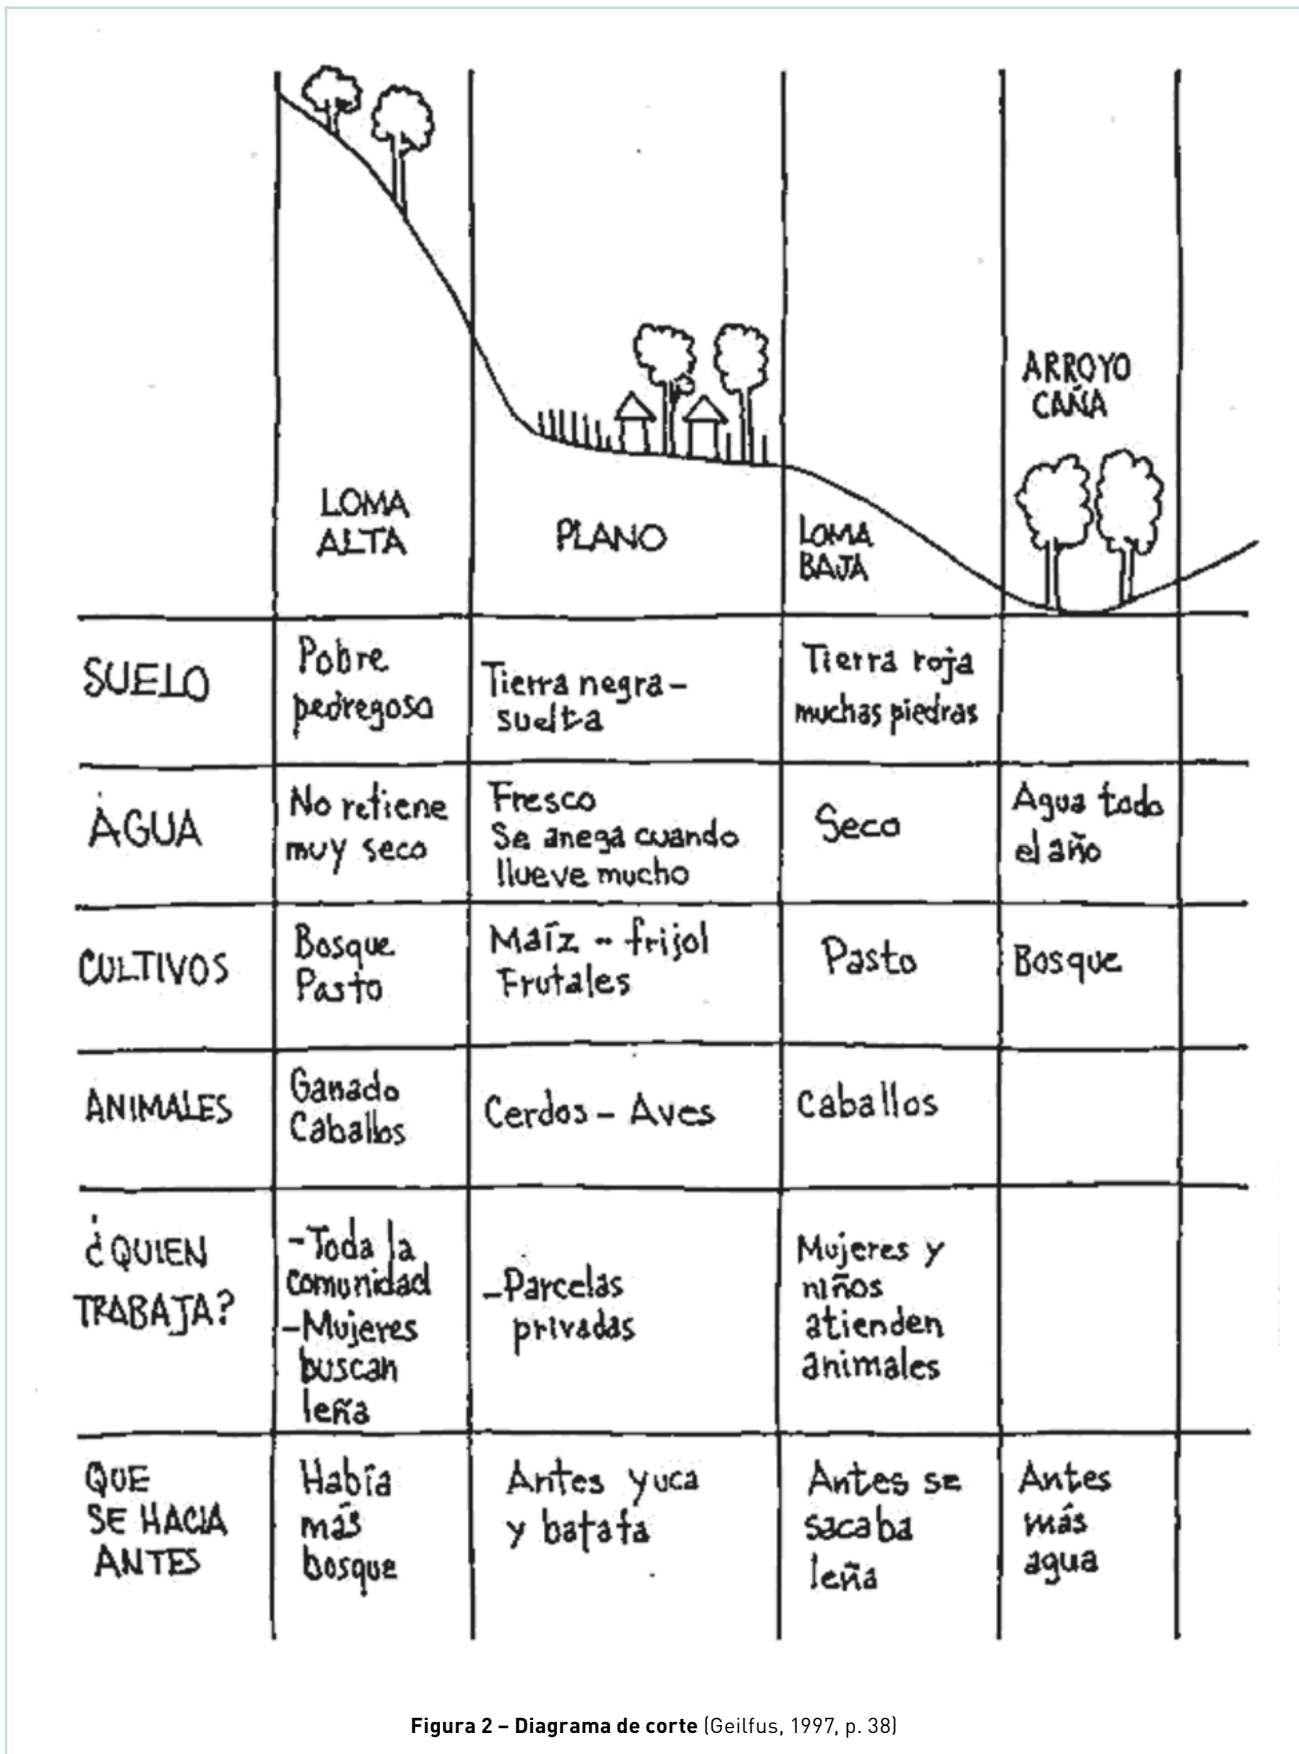 ARROYO
CAÑA
LOMA
ALTA
PLANO
LOMA
BAJA
SUELO
Pobre
pedregoso
Tierra negra –
suelta
Tierra roja
muchas piedras
ÁGUA
No retiene
muy seco
Fresco
Se anega cuando
llueve mucho
Seco
Agua todo
el año
CULTIVOS
Bosque
Pasto
Maíz – frijol
Frutales
Pasto
Bosque
ANIMALES
Ganado
Caballos
Cerdos – Aves
Caballos
¿QUIEN
TRABAJA?
– Toda la
comunidad
– Mujeres
buscan
leña
– Parcelas
privadas
Mujeres y
niños
atienden
animales
QUE
SE HACIA
ANTES
Había
más
bosque
Antes yuca
y batata
Antes se
sacaba
leña
Antes
más
agua
Figura 2 – Diagrama de corte (Geilfus, 1997, p. 38)